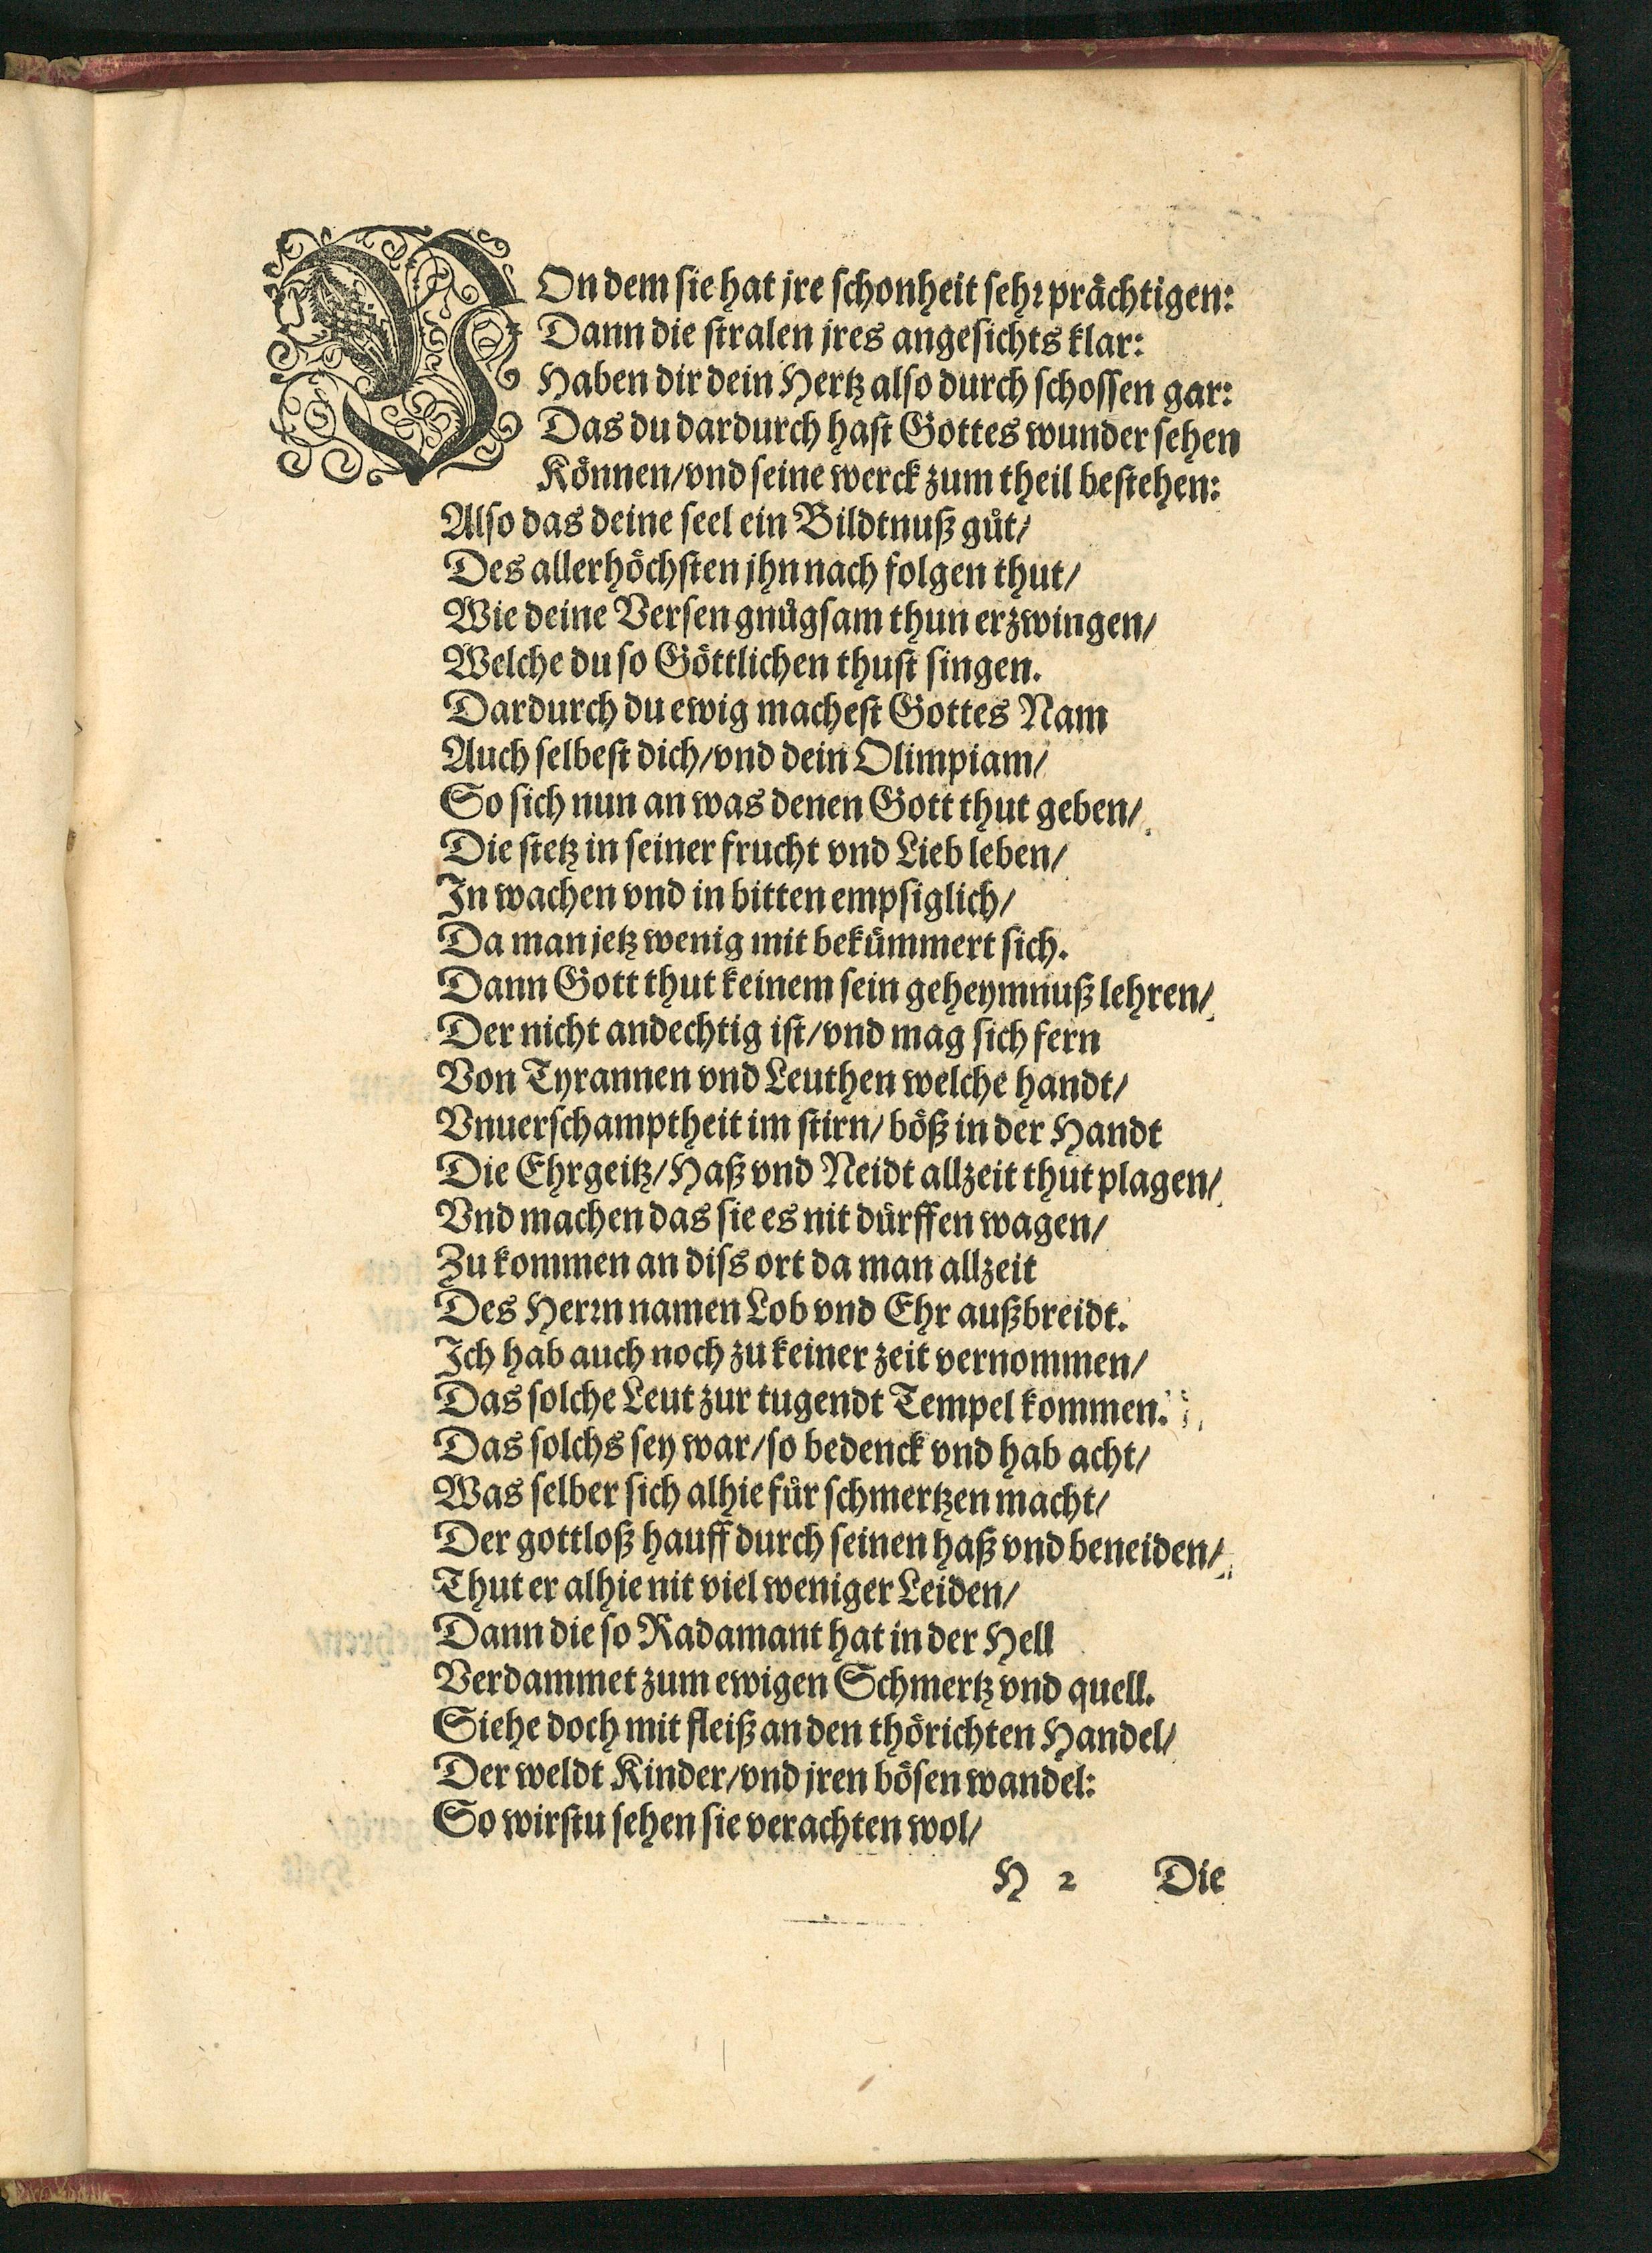 VOn dem sie hat jre schonheit sehr prächtigen:
Dann die stralen jres angesichts klar:
Haben dir dein Hertz also durch schossen gar:
Das du dardurch hast Gottes wunder sehen
Können/ vnd seine werck zum theil bestehen:
Also das deine seel ein Bildtnuß gůt/
Des allerhöchsten jhn nach folgen thut/
Wie deine Versen gnůgsam thun erzwingen/
Welche du so Göttlichen thust singen.
Dardurch du ewig machest Gottes Nam
Auch selbest dich/ vnd dein Olimpiam/
So sich nun an was denen Gott thut geben/
Die stetz in seiner frucht vnd Lieb leben/
In wachen vnd in bitten empsiglich/
Da man jetz wenig mit bekümmert sich.
Dann Gott thut keinem sein geheymnuß lehren/
Der nicht andechtig ist/ vnd mag sich fern
Von Tyrannen vnd Leuthen welche handt/
Vnuerschamptheit im stirn/ böß in der Handt
Die Ehrgeitz/ Haß vnd Neidt allzeit thut plagen/
Vnd machen das sie es nit dürffen wagen/
Zu kommen an diss ort da man allzeit
Des Herrn namen Lob vnd Ehr außbreidt.
Ich hab auch noch zu keiner zeit vernommen/
Das solche Leut zur tugendt Tempel kommen.
Das solchs sey war/ so bedenck vnd hab acht/
Was selber sich alhie für schmertzen macht/
Der gottloß hauff durch seinen haß vnd beneiden/
Thut er alhie nit viel weniger Leiden/
Dann die so Radamant hat in der Hell
Verdammet zum ewigen Schmertz vnd quell.
Siehe doch mit fleiß an den thörichten Handel/
Der weldt Kinder/ vnd jren bösen wandel:
So wirstu sehen sie verachten wol/
H 2 Die